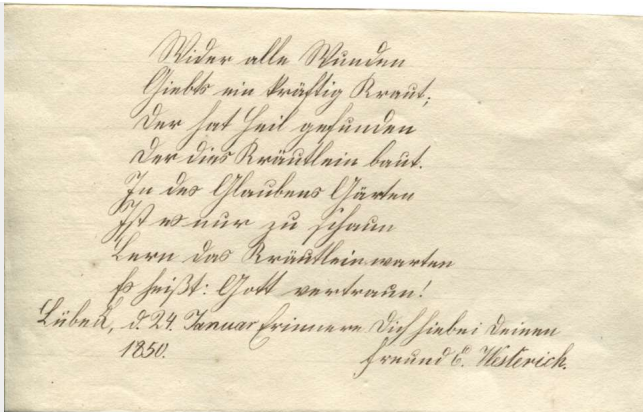 Wider alle Wunden
Giebts ein kräftig Kraut;
Der hat Heil gefunden
Der dies Kräutlein baut.
In des Glaubens Gärten
Ist es nur zu schaun
Lern das Kräutlein warten
Es heißt: Gott vertraun!
Lübeck, d. 24. Januar Erinnere Dich hiebei Deinen
1850. Freund C. Westerich.